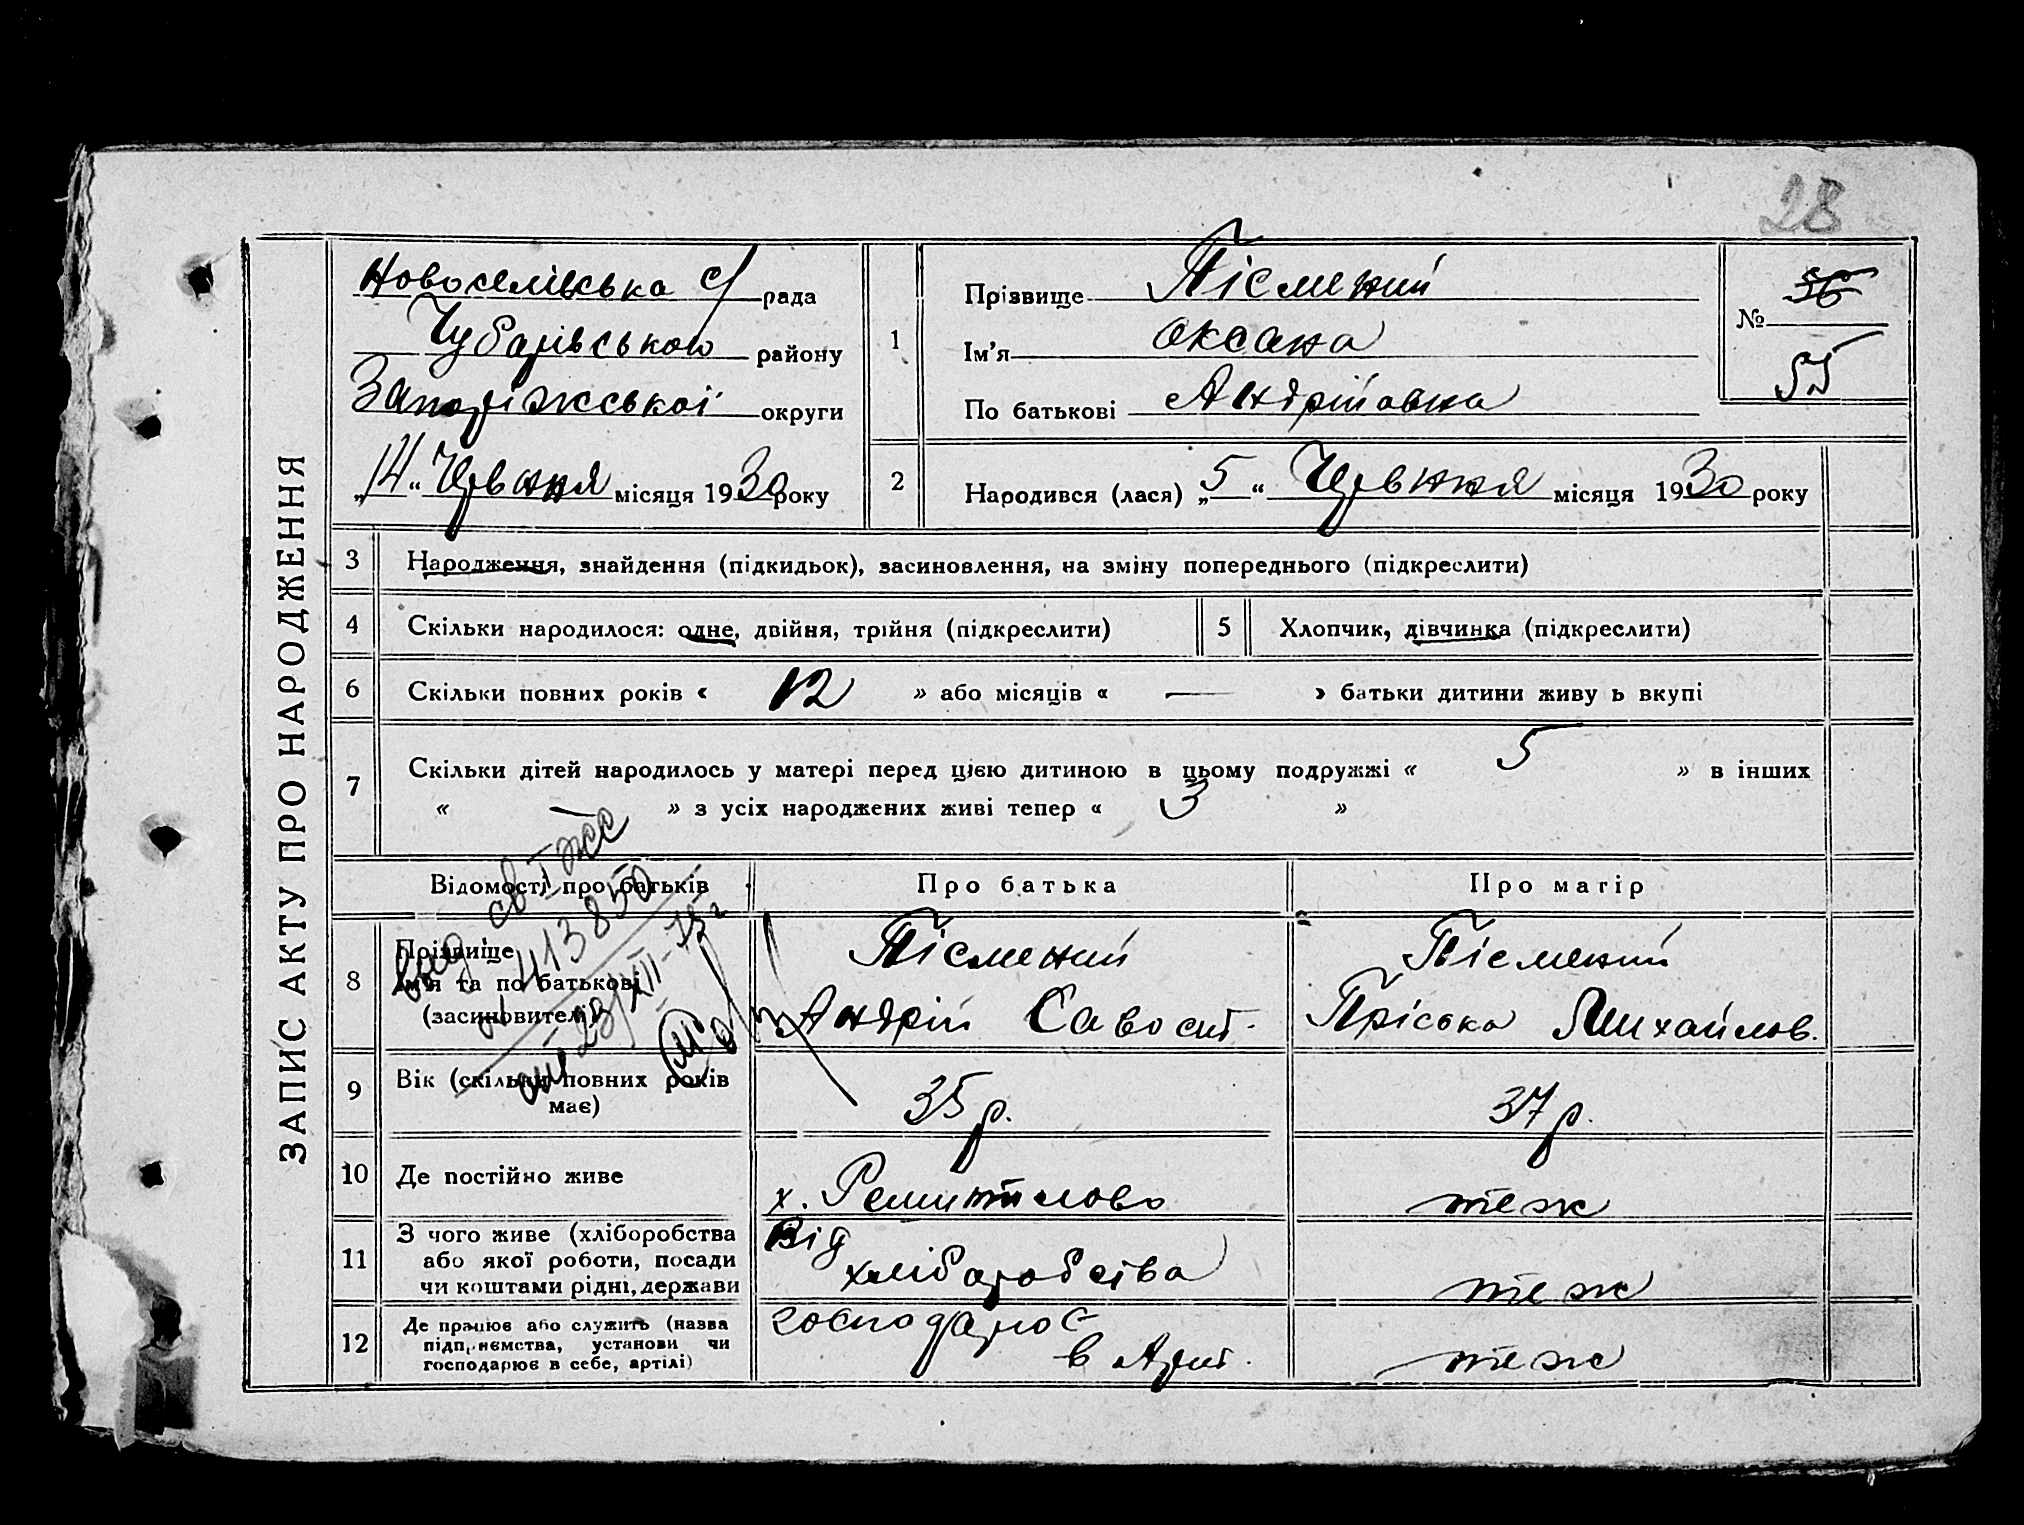 28
ЗАПИС АКТУ ПРО НАРОДЖЕННЯ
Новоселівська с/ рада
Чубарівською району
Запоріжської округи
„14“ Червння місяця 1930 року
1
Прізвище Пісмений
Ім’я Оксана
По батькові Андрійовна
№ 36
55
2
Народився (лася) „5“ Червння місяця 1930 року
3 Народження, знайдення (підкидьок), засиновлення, на зміну попереднього (підкреслити)
4 Скільки народилося: одне, двійня, трійня (підкреслити)
5 Хлопчик, дівчинка (підкреслити)
6 Скільки повних років « 12 » або місяців « — » батьки дитини живу ь вкупі
7 Скільки дітей народилось у матері перед цією дитиною в цьому подружжі « 5 » в інших
« — » з усіх народжених живі тепер « 3 »
Відомості про батьків
Про батька
Про матір
8 Прізвище
Ім’я та по батькові
(засиновителі)
Пісмений
Андрій Савост.
Пісмений
Пріська Михайлов.
9 Вік (скільки повних років
має)
35 р.
37 р.
10 Де постійно живе
х.
теж
11 З чого живе (хліборобства
або якої роботи, посади
чи коштами рідні, держави
Від
хліборобства
теж
12 Де працює або служить (назва
підприємства, установи чи
господарює в себе, артілі)
господарює
в Арт.
теж
выд св I жс
№ 413850
от 23/XII-75г